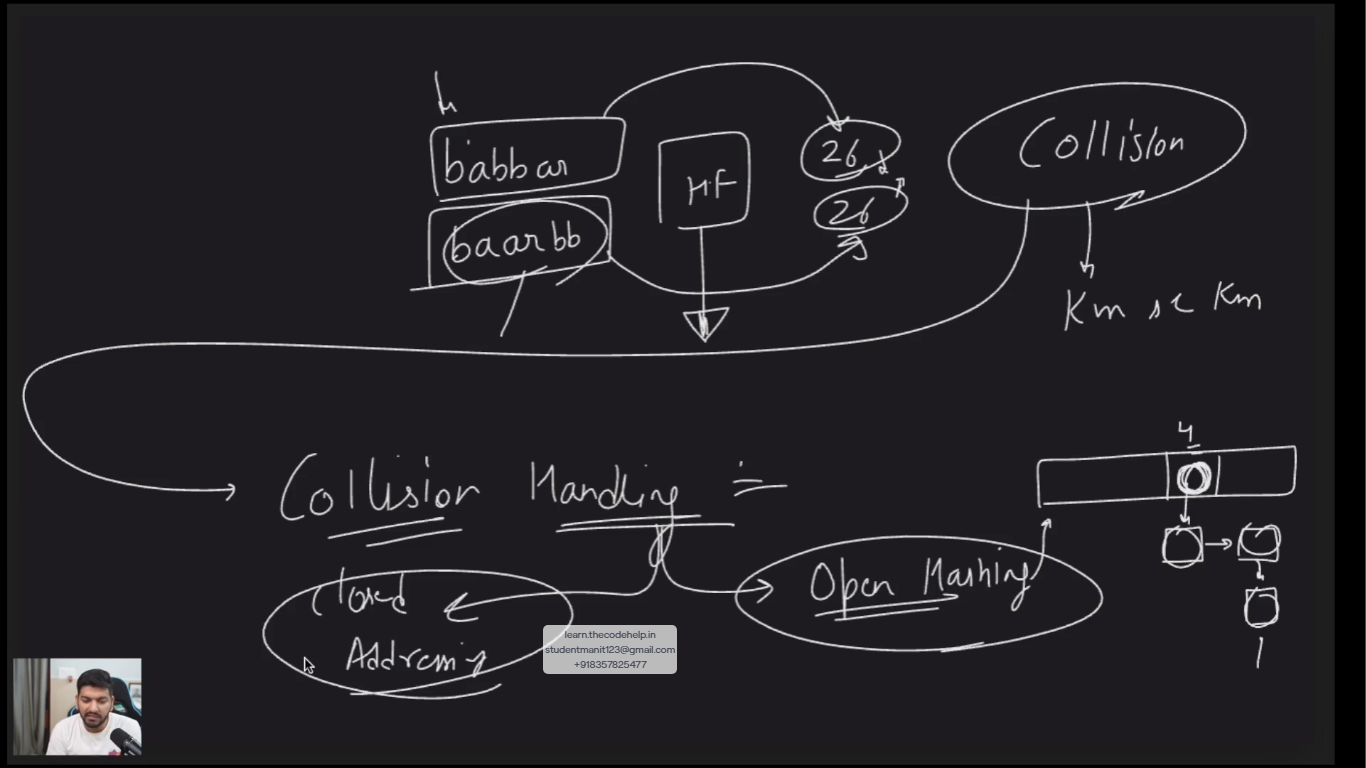 babbar
H.F
26
Collision
baarbb
26
Km se Km
4
Collision Handling :-
Closed
Addressing
Open Hashing
learn.thecodehelp.in
studentmanit123@gmail.com
+918357825477